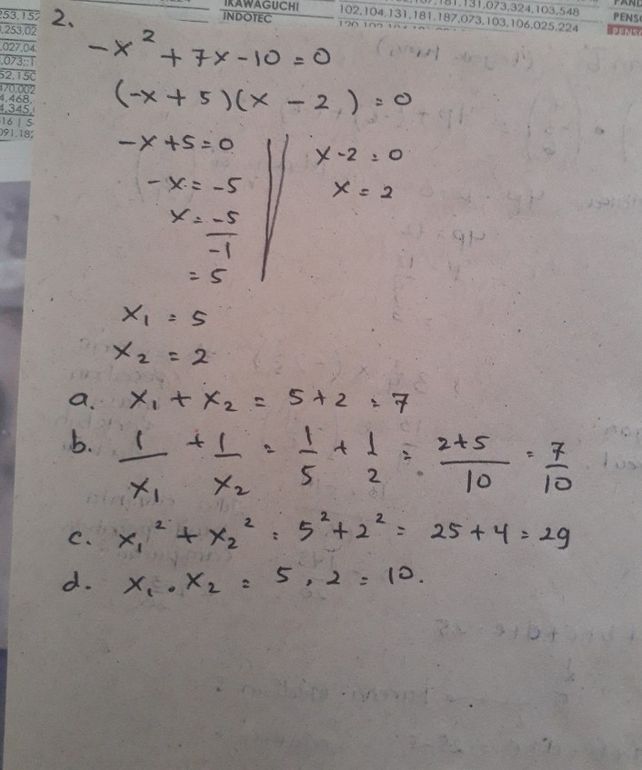 IKAWAGUCHI
INDOTEC
102,104,131,181,187,073,103,106,025,224
2.
-x² + 7x - 10 = 0
(-x + 5)(x - 2) = 0
-x + 5 = 0 x - 2 = 0
-x = -5 x = 2
x = -5/-1
= 5
x₁ = 5
x₂ = 2
a. x₁ + x₂ = 5 + 2 = 7
b. 1/x₁ + 1/x₂ = 1/5 + 1/2 = 2+5/10 = 7/10
c. x₁² + x₂² = 5² + 2² = 25 + 4 = 29
d. x₁ . x₂ = 5 . 2 = 10.